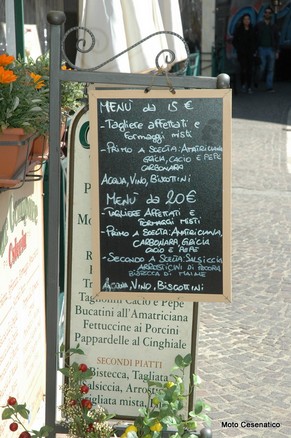 MENÙ da 15 €
- Tagliere affettati e
formaggi misti
- Primo a scelta: Amatriciana,
Gricia, Cacio e Pepe
Carbonara
Acqua, Vino, Biscottini
MENÙ da 20 €
- Tagliere Affettati e
formaggi misti
- Primo a scelta: Amatriciana,
Carbonara, Gricia
Cacio e Pepe
- Secondo a scelta: Salsiccia
Arrosticini di pecora
Bistecca di maiale
Acqua, Vino, Biscottini
Tagnolini Cacio e Pepe
Bucatini all'Amatriciana
Fettuccine ai Porcini
Pappardelle al Cinghiale
SECONDI PIATTI
Bistecca, Tagliata
salsiccia, Arrost
mista,
Moto Cesenatico